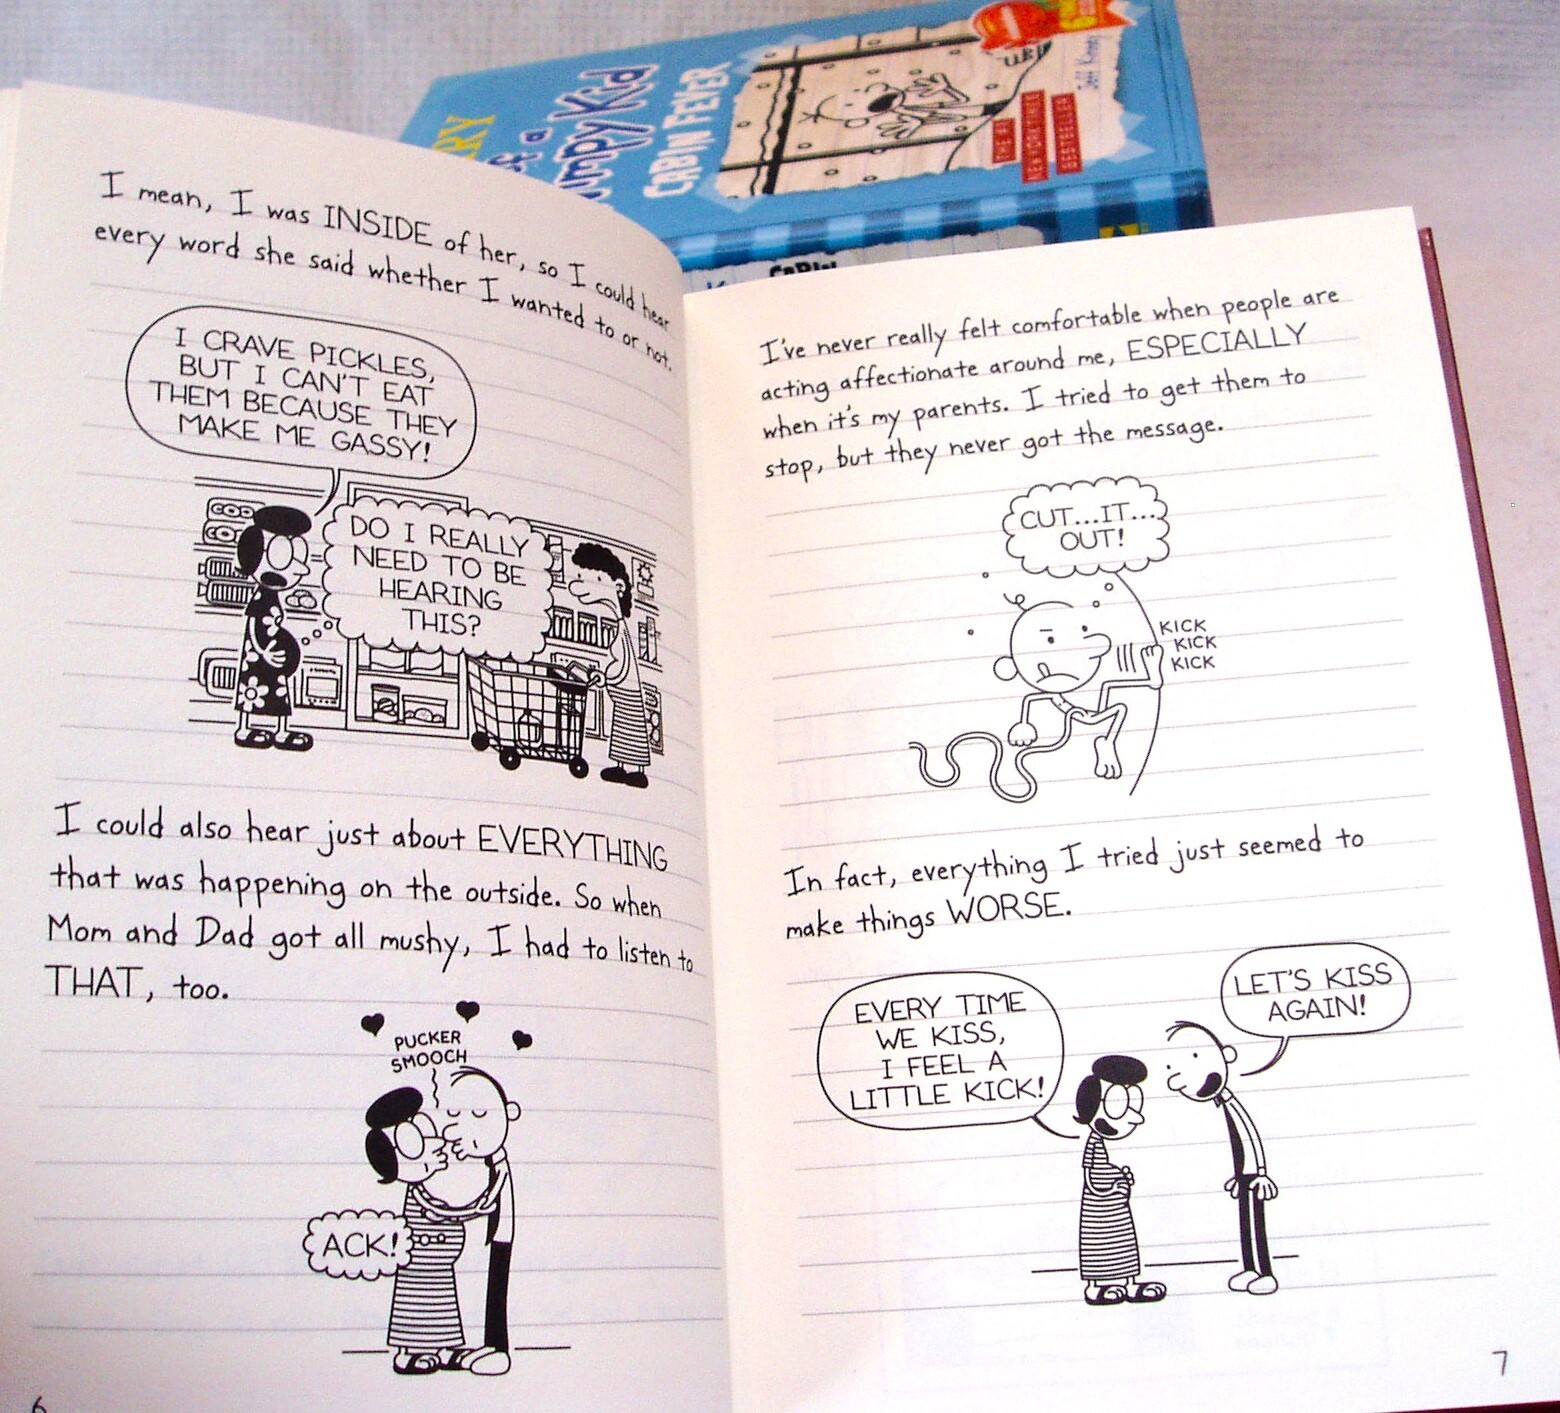 DIARY
of a
Wimpy Kid
CABIN FEVER
UR!
THE #1
NEW YORK TIMES
BESTSELLER
Jeff Kinney
I mean, I was INSIDE of her, so I could hear
every word she said whether I wanted to or not.
I CRAVE PICKLES,
BUT I CAN'T EAT
THEM BECAUSE THEY
MAKE ME GASSY!
DO I REALLY
NEED TO BE
HEARING
THIS?
I could also hear just about EVERYTHING
that was happening on the outside. So when
Mom and Dad got all mushy, I had to listen to
THAT, too.
PUCKER
SMOOCH
ACK!
6
I've never really felt comfortable when people are
acting affectionate around me, ESPECIALLY
when it's my parents. I tried to get them to
stop, but they never got the message.
CUT...IT...
OUT!
KICK
KICK
KICK
In fact, everything I tried just seemed to
make things WORSE.
EVERY TIME
WE KISS,
I FEEL A
LITTLE KICK!
LET'S KISS
AGAIN!
7